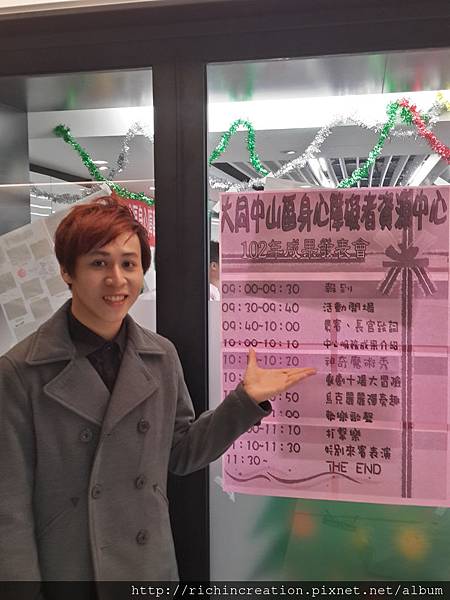 大同中山區身心障礙者資源中心
102年成果發表會
09:00~09:30 報到
09:30~09:40 活動開場
09:40~10:00 貴賓、長官致詞
10:00~10:10 中心服務成果介紹
10:20 神奇魔術秀
戲劇十福大冒險
:50 烏克麗麗彈奏趣
:00 歡樂敲擊
~11:10 打擊樂
~11:30 特別來賓表演
11:30~ THE END
http://richincreation.pixnet.net/album